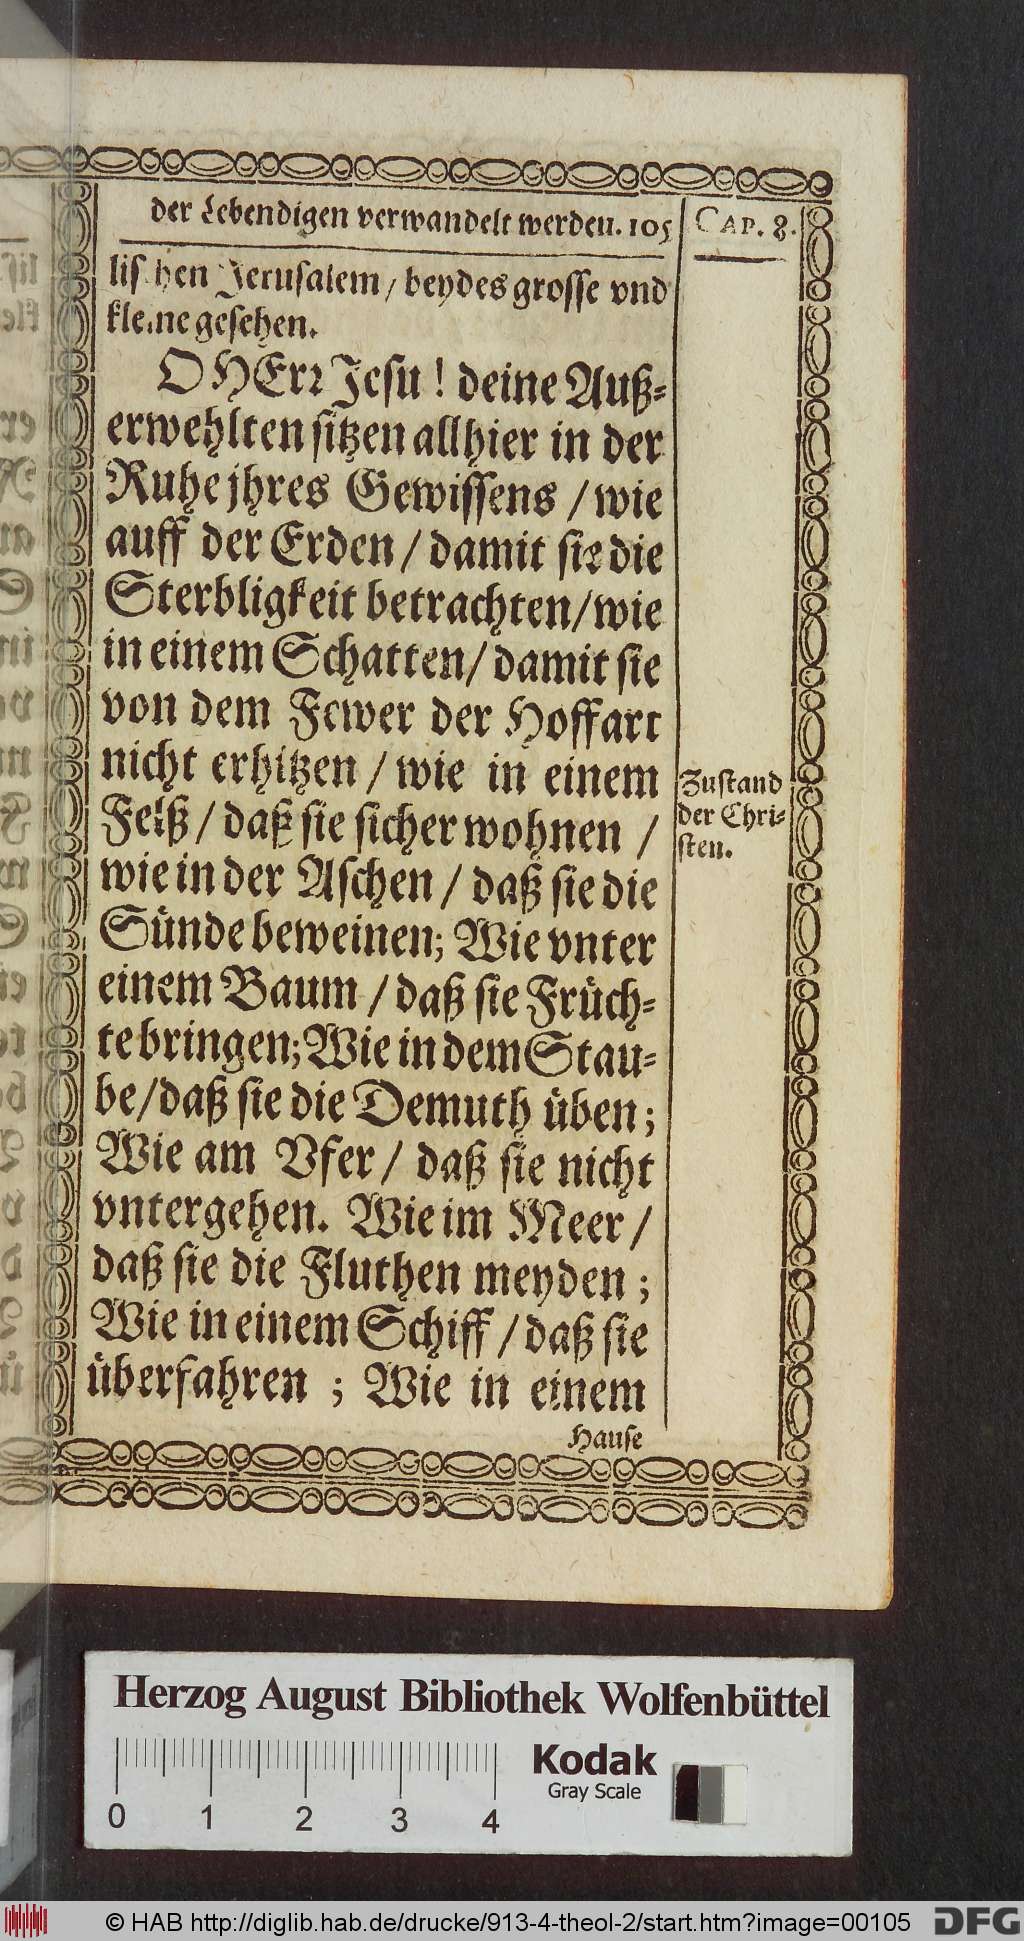 der Lebendigen verwandelt werden. 105
CAP. 8.
lischen Jerusalem / beydes grosse vnd
kleine gesehen.
O HErr Jesu! deine Auß-
erwehlten sitzen allhier in der
Ruhe jhres Gewissens / wie
auff der Erden / damit sie die
Sterbligkeit betrachten / wie
in einem Schatten / damit sie
von dem Fewer der Hoffart
nicht erhitzen / wie in einem
Felß / daß sie sicher wohnen /
wie in der Aschen / daß sie die
Sünde beweinen; Wie vnter
einem Baum / daß sie Früch-
te bringen; Wie in dem Stau-
be / daß sie die Demuth üben;
Wie am Vfer / daß sie nicht
vntergehen. Wie im Meer /
daß sie die Fluthen meyden;
Wie in einem Schiff / daß sie
überfahren; Wie in einem
Hause
Zustand
der Chri-
sten.
Herzog August Bibliothek Wolfenbüttel
Kodak
Gray Scale
0 1 2 3 4
© HAB http://diglib.hab.de/drucke/913-4-theol-2/start.htm?image=00105
DFG